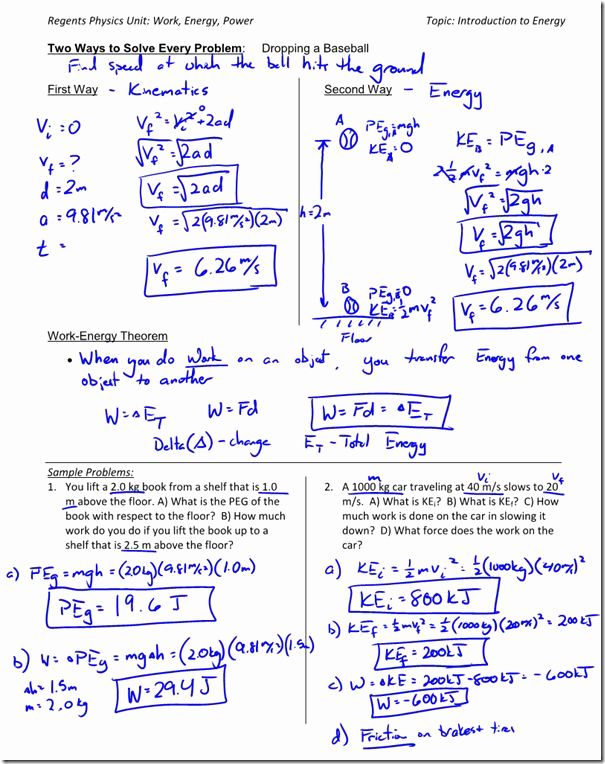 Regents Physics Unit: Work, Energy, Power
Topic: Introduction to Energy
Two Ways to Solve Every Problem: Dropping a Baseball
Find speed at which the ball hits the ground
First Way - Kinematics
Vi = 0
Vf = ?
d = 2m
a = 9.81 m/s²
t =
Vf² = Vi² + 2ad
0
√Vf² = √2ad
Vf = √2ad
Vf = √2(9.81 m/s²)(2m)
Vf = 6.26 m/s
Second Way - Energy
A
PEg,A = mgh
KEA = 0
h = 2m
B
PEg,B = 0
KEB = ½mVf²
Floor
KEB = PEg,A
2·½mVf² = mgh·2
√Vf² = √2gh
Vf = √2gh
Vf = √2(9.81 m/s²)(2m)
Vf = 6.26 m/s
Work-Energy Theorem
• When you do Work on an object, you transfer Energy from one
object to another
W = ΔET W = Fd W = Fd = ΔET
Delta(Δ) - change ET - Total Energy
Sample Problems:
1. You lift a 2.0 kg book from a shelf that is 1.0
m above the floor. A) What is the PEG of the
book with respect to the floor? B) How much
work do you do if you lift the book up to a
shelf that is 2.5 m above the floor?
a) PEg = mgh = (2.0kg)(9.81 m/s²)(1.0m)
PEg = 19.6 J
b) W = ΔPEg = mgΔh = (2.0kg)(9.81 m/s²)(1.5m)
Δh = 1.5m
m = 2.0kg
W = 29.4 J
m Vi Vf
2. A 1000 kg car traveling at 40 m/s slows to 20
m/s. A) What is KEi? B) What is KEf? C) How
much work is done on the car in slowing it
down? D) What force does the work on the
car?
a) KEi = ½mVi² = ½(1000kg)(40 m/s)²
KEi = 800 kJ
b) KEf = ½mVf² = ½(1000kg)(20 m/s)² = 200 kJ
KEf = 200 kJ
c) W = ΔKE = 200kJ - 800kJ = -600kJ
W = -600kJ
d) Friction on brakes & tires